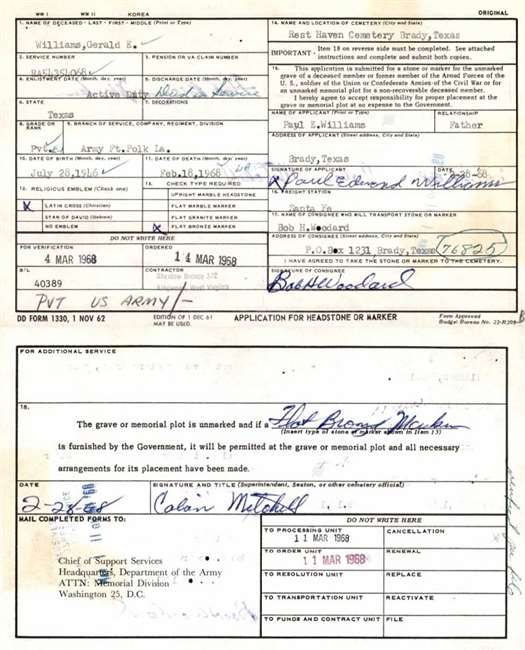 WW I WW II KOREA ORIGINAL
1. NAME OF DECEASED - LAST - FIRST - MIDDLE (Print or Type)
Williams, Gerald E.
2. SERVICE NUMBER
3. PENSION OR VA CLAIM NUMBER
4. ENLISTMENT DATE (Month, day, year)
5. DISCHARGE DATE (Month, day, year)
Active Duty
6. STATE
7. DECORATIONS
Texas
8. GRADE OR RANK
9. BRANCH OF SERVICE, COMPANY, REGIMENT, DIVISION
Pvt. Army Ft. Polk La.
10. DATE OF BIRTH (Month, day, year)
11. DATE OF DEATH (Month, day, year)
July 28, 1946 Feb.18,1968
12. RELIGIOUS EMBLEM (Check one)
13. CHECK TYPE REQUIRED
UPRIGHT MARBLE HEADSTONE
X LATIN CROSS (Christian)
FLAT MARBLE MARKER
STAR OF DAVID (Hebrew)
FLAT GRANITE MARKER
NO EMBLEM
X FLAT BRONZE MARKER
DO NOT WRITE HERE
FOR VERIFICATION
4 MAR 1968
ORDERED
14 MAR 1968
B/L
40389
CONTRACTOR
PVT US ARMY/-
14. NAME AND LOCATION OF CEMETERY (City and State)
Rest Haven Cemetery Brady, Texas
IMPORTANT - Item 18 on reverse side must be completed. See attached
instructions and complete and submit both copies.
15.
This application is submitted for a stone or marker for the unmarked
grave of a deceased member or former member of the Armed Forces of the
U. S., soldier of the Union or Confederate Armies of the Civil War or for
an unmarked memorial plot for a non-recoverable deceased member.
I hereby agree to accept responsibility for proper placement at the
grave or memorial plot at no expense to the Government.
NAME OF APPLICANT (Print or type)
RELATIONSHIP
Paul E.Williams Father
ADDRESS OF APPLICANT (Street address, City and State)
Brady, Texas
SIGNATURE OF APPLICANT
DATE
Paul Edward Williams
16. FREIGHT STATION
Santa Fe
17. NAME OF CONSIGNEE WHO WILL TRANSPORT STONE OR MARKER
Bob H.Woodard
ADDRESS OF CONSIGNEE (Street address, City and State)
P.O.Box 1231 Brady,Texas 76825
I HAVE AGREED TO TAKE THE STONE OR MARKER TO THE CEMETERY.
SIGNATURE OF CONSIGNEE
Bob H Woodard
DD FORM 1330, 1 NOV 62
EDITION OF 1 DEC 61
MAY BE USED.
APPLICATION FOR HEADSTONE OR MARKER
Form Approved
FOR ADDITIONAL SERVICE
18.
The grave or memorial plot is unmarked and if a Flat Bronze Marker
(Insert type of stone or marker shown in Item 13)
is furnished by the Government, it will be permitted at the grave or memorial plot and all necessary
arrangements for its placement have been made.
DATE
2-28-68
SIGNATURE AND TITLE (Superintendent, Sexton, or other cemetery official)
Mitchell
MAIL COMPLETED FORMS TO:
Chief of Support Services
Headquarters, Department of the Army
ATTN: Memorial Division
Washington 25, D.C.
DO NOT WRITE HERE
TO PROCESSING UNIT
11 MAR 1968
CANCELLATION
TO ORDER UNIT
11 MAR 1968
RENEWAL
TO RESOLUTION UNIT
REPLACE
TO TRANSPORTATION UNIT
REACTIVATE
TO FUNDS AND CONTRACT UNIT
FILE